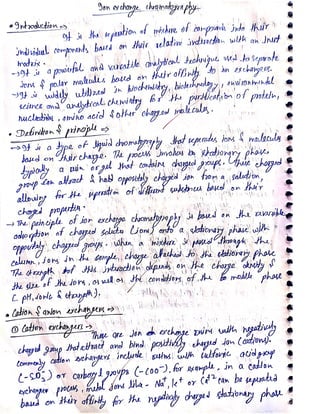 Ion exchange chromatography.
• Introduction →
It is the separation of mixture of components into their
individual components based on their relative interaction with an inert
matrix.
→ It is a powerful and versatile analytical technique used to separate
ions & polar molecules based on their affinity to ion exchangers.
→ It is widely utilized in biochemistry, biotechnology, environmental
science and analytical chemistry for the purification of protein,
nucleotides, amino acid & other charged molecules.
• Definition & principle →
→ It is a type of liquid chromatography that seperates ions & molecules
based on their charge. The process involves a stationary phase
typically a resin or gel that contains charged groups. These charged
group can attract & hold oppositely charged ion from a solution,
allowing for the seperation of different substances based on their
charged properties.
→ The principle of ion exchange chromatography is based on the reversible
adsorption of charged solutes (ions) onto a stationary phase with
oppositely charged groups. When a mixture is passed through the
column, ions in the sample charge attached to the stationary phase
The strength of this interaction depends on the charge density &
the size of the ions, as well as the conditions of the mobile phase
[ pH, ionic & strength).
• Cation & anion exchangers →
① Cation exchangers →
These are Ion exchange resins with negatively
charged group that attract and bind positively charged ion (cations).
commonly cation exchangers include resins with sulfonic acid group
(-SO₃⁻) or carboxyl groups (-COO⁻). for example, in a cation
exchanger process, metal ions like - Na⁺, K⁺ or Ca²⁺ can be seperated
based on their affinity for the negatively charged stationary phase